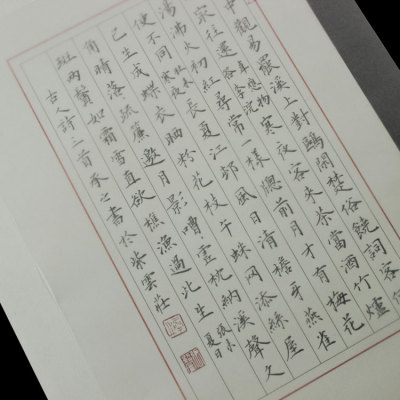 中觀易羅溪上對鷗閑楚俗饒詞客何
往還寒夜客來茶當酒竹爐
湯沸火初紅尋常一樣窗前月才有梅花
便不同寒夜長夏江邨風日清檐牙燕雀
已生成蝶衣晒粉花枝午蛛网添絲屋
角晴落疏簾邀月影嘈虛枕納溪聲久
斑兩鬢如霜雪直欲樵漁過此生張耒夏日
古人詩二首書於紫雲莊